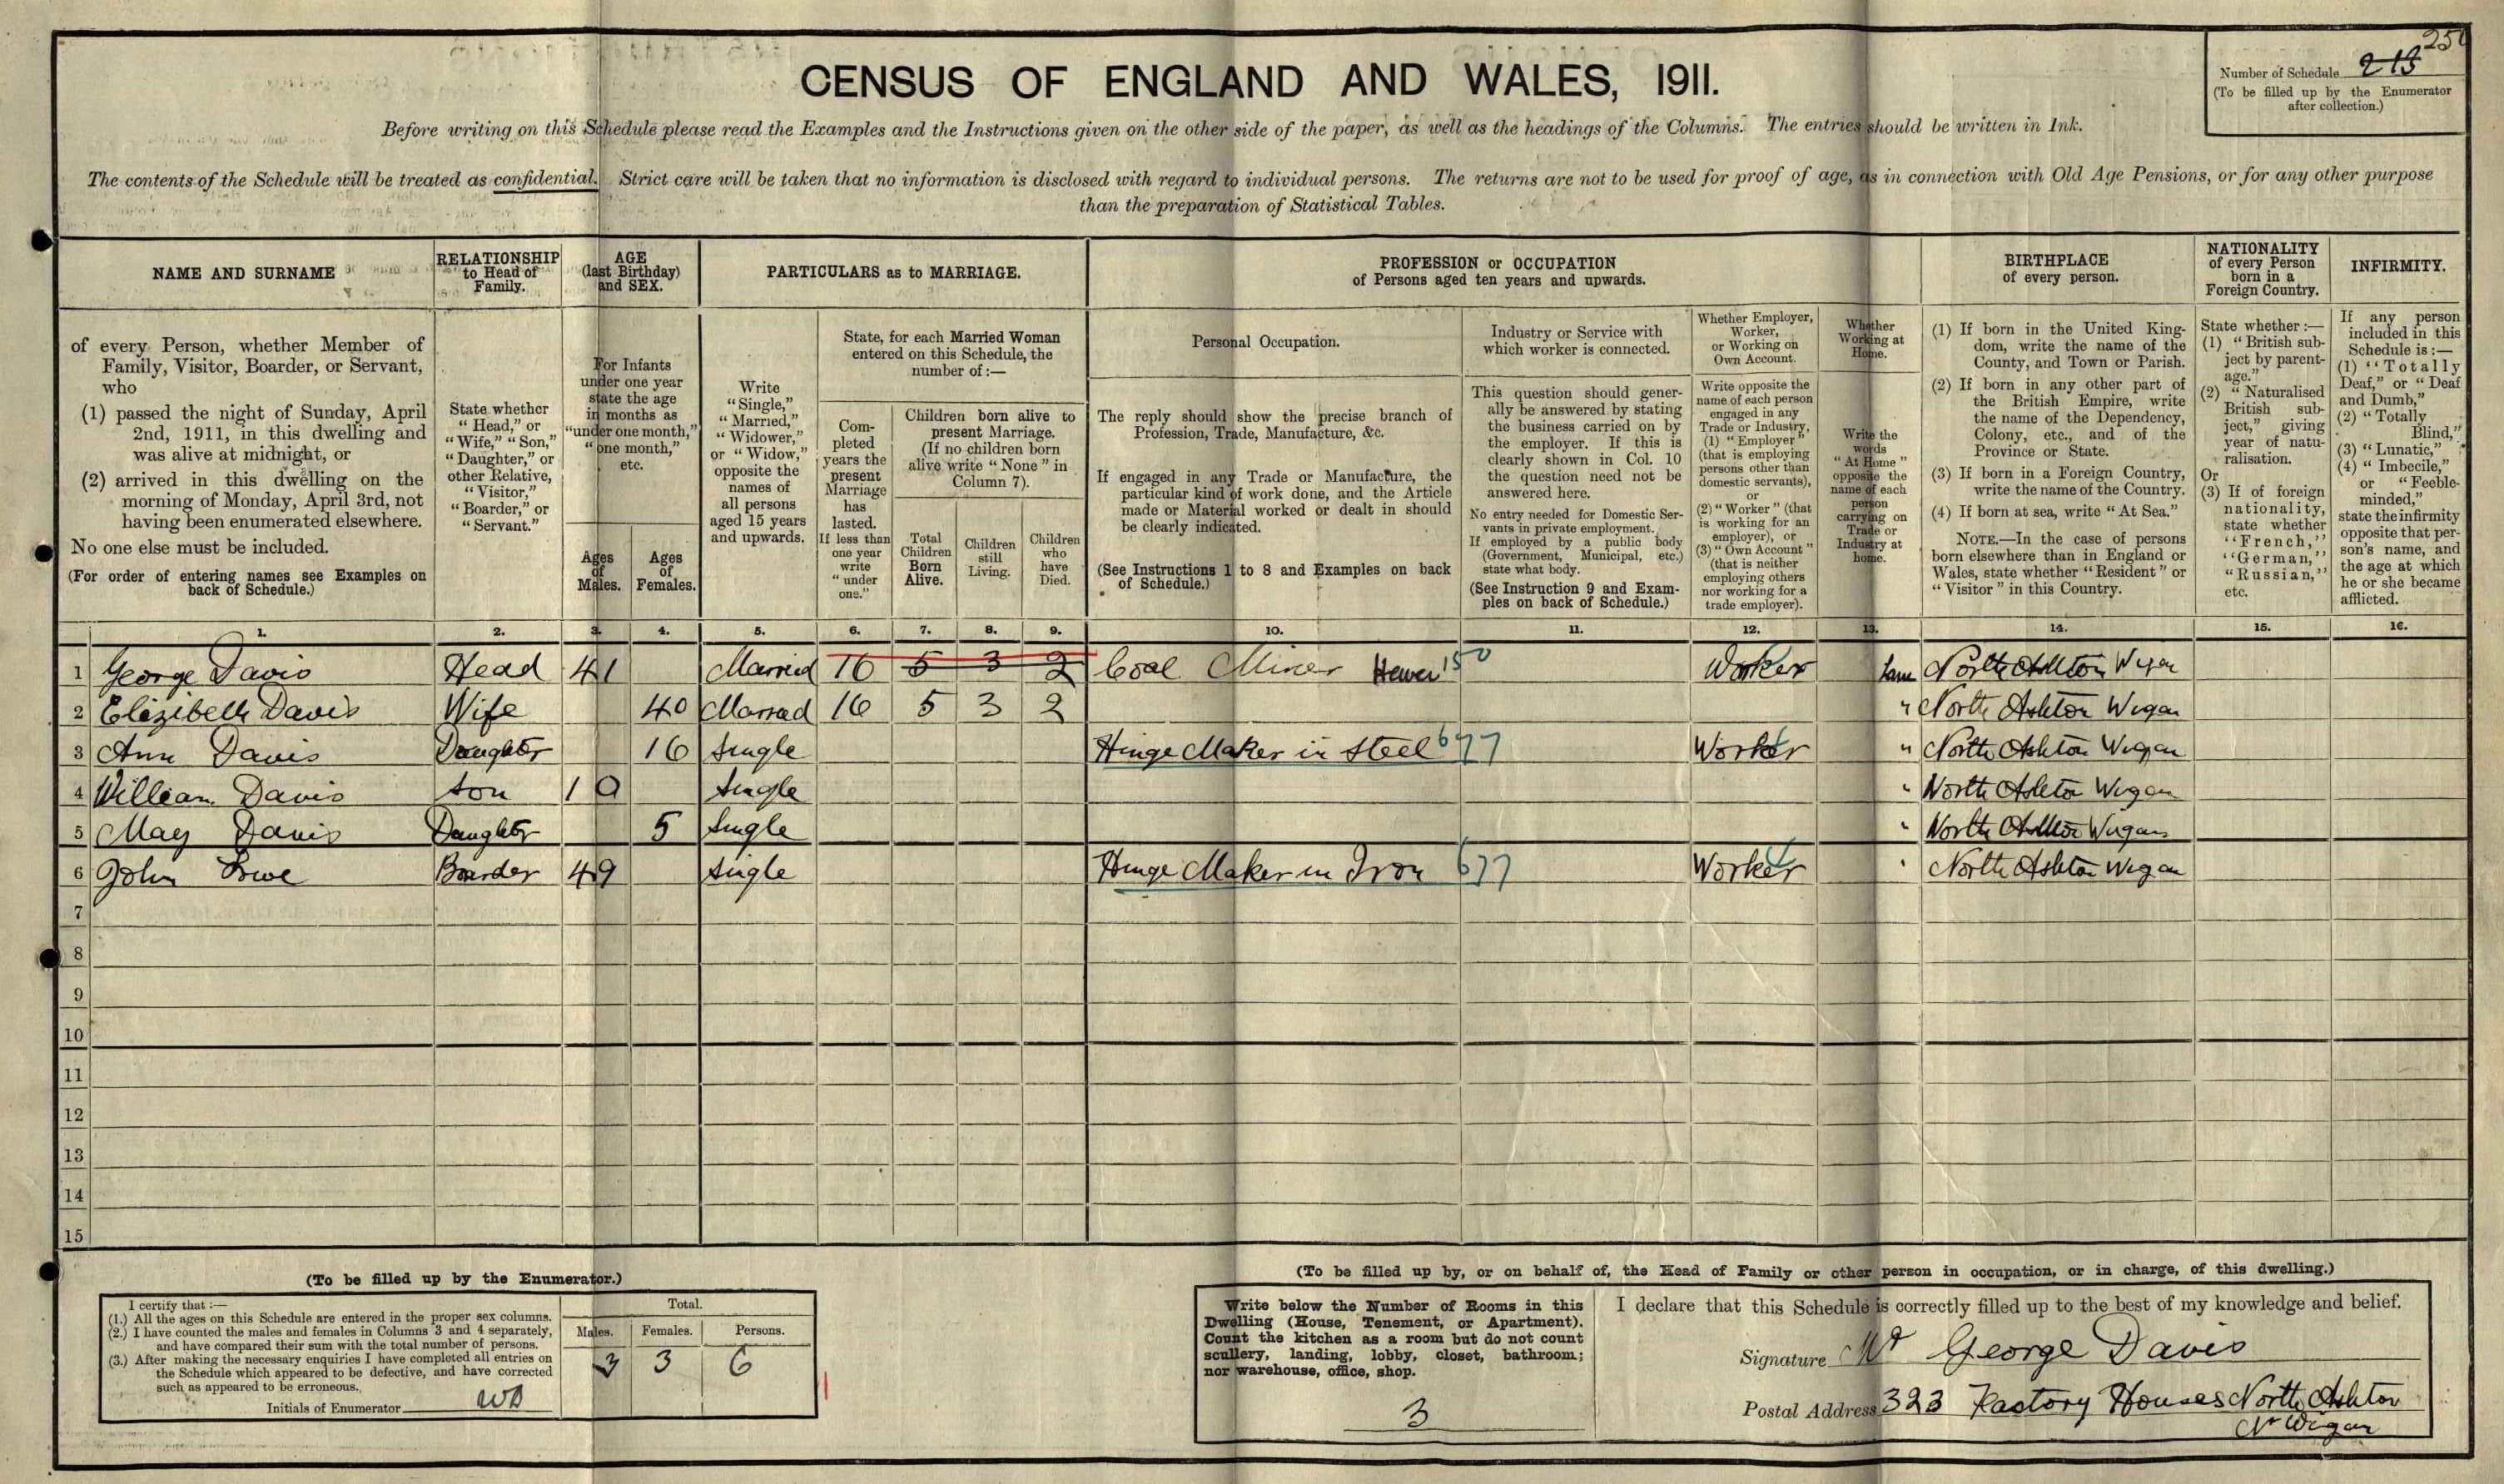 250
CENSUS OF ENGLAND AND WALES, 1911.
Number of Schedule 213
(To be filled up by the Enumerator
after collection.)
Before writing on this Schedule please read the Examples and the Instructions given on the other side of the paper, as well as the headings of the Columns. The entries should be written in Ink.
The contents of the Schedule will be treated as confidential. Strict care will be taken that no information is disclosed with regard to individual persons. The returns are not to be used for proof of age, as in connection with Old Age Pensions, or for any other purpose
than the preparation of Statistical Tables.
NAME AND SURNAME
of every Person, whether Member of
Family, Visitor, Boarder, or Servant,
who
(1) passed the night of Sunday, April
2nd, 1911, in this dwelling and
was alive at midnight, or
(2) arrived in this dwelling on the
morning of Monday, April 3rd, not
having been enumerated elsewhere.
No one else must be included.
(For order of entering names see Examples on
back of Schedule.)
RELATIONSHIP
to Head of
Family.
State whether
"Head," or
"Wife," "Son,"
"Daughter," or
other Relative,
"Visitor,"
"Boarder," or
"Servant."
AGE
(last Birthday)
and SEX.
For Infants
under one year
state the age
in months as
"under one month,"
"one month,"
etc.
Ages
of
Males.
Ages
of
Females.
PARTICULARS as to MARRIAGE.
Write
"Single,"
"Married,"
"Widower,"
or "Widow,"
opposite the
names of
all persons
aged 15 years
and upwards.
State, for each Married Woman
entered on this Schedule, the
number of :—
Com-
pleted
years the
present
Marriage
has
lasted.
If less than
one year
write
"under
one."
Children born alive to
present Marriage.
(If no children born
alive write "None" in
Column 7).
Total
Children
Born
Alive.
Children
still
Living.
Children
who
have
Died.
PROFESSION or OCCUPATION
of Persons aged ten years and upwards.
Personal Occupation.
The reply should show the precise branch of
Profession, Trade, Manufacture, &c.
If engaged in any Trade or Manufacture, the
particular kind of work done, and the Article
made or Material worked or dealt in should
be clearly indicated.
(See Instructions 1 to 8 and Examples on back
of Schedule.)
Industry or Service with
which worker is connected.
This question should gener-
ally be answered by stating
the business carried on by
the employer. If this is
clearly shown in Col. 10
the question need not be
answered here.
No entry needed for Domestic Ser-
vants in private employment.
If employed by a public body
(Government, Municipal, etc.)
state what body.
(See Instruction 9 and Exam-
ples on back of Schedule.)
Whether Employer,
Worker,
or Working on
Own Account.
Write opposite the
name of each person
engaged in any
Trade or Industry,
(1) "Employer"
(that is employing
persons other than
domestic servants),
or
(2) "Worker" (that
is working for an
employer), or
(3) "Own Account"
(that is neither
employing others
nor working for a
trade employer).
Whether
Working at
Home.
Write the
words
"At Home"
opposite the
name of each
person
carrying on
Trade or
Industry at
home.
BIRTHPLACE
of every person.
(1) If born in the United King-
dom, write the name of the
County, and Town or Parish.
(2) If born in any other part of
the British Empire, write
the name of the Dependency,
Colony, etc., and of the
Province or State.
(3) If born in a Foreign Country,
write the name of the Country.
(4) If born at sea, write "At Sea."
NOTE.—In the case of persons
born elsewhere than in England or
Wales, state whether "Resident" or
"Visitor" in this Country.
NATIONALITY
of every Person
born in a
Foreign Country.
State whether :—
(1) "British sub-
ject by parent-
age."
(2) "Naturalised
British sub-
ject," giving
year of natu-
ralisation.
Or
(3) If of foreign
nationality,
state whether
"French,"
"German,"
"Russian,"
etc.
INFIRMITY.
If any person
included in this
Schedule is :—
(1) "Totally
Deaf," or "Deaf
and Dumb,"
(2) "Totally
Blind,"
(3) "Lunatic,"
(4) "Imbecile,"
or "Feeble-
minded,"
state the infirmity
opposite that per-
son's name, and
the age at which
he or she became
afflicted.
1. 2. 3. 4. 5. 6. 7. 8. 9. 10. 11. 12. 13. 14. 15. 16.
1 George Davis Head 41 Married 16 5 3 2 Coal Miner Hewer 150 Worker Lanc North Ashton Wigan
2 Elizibeth Davis Wife 40 Married 16 5 3 2 " North Ashton Wigan
3 Ann Davis Daughter 16 Single Hinge Maker in Steel 677 Worker " North Ashton Wigan
4 William Davis Son 10 Single " North Ashton Wigan
5 May Davis Daughter 5 Single " North Ashton Wigan
6 John Lowe Boarder 49 Single Hinge Maker in Iron 677 Worker " North Ashton Wigan
7
8
9
10
11
12
13
14
15
(To be filled up by the Enumerator.)
I certify that :—
(1.) All the ages on this Schedule are entered in the proper sex columns.
(2.) I have counted the males and females in Columns 3 and 4 separately,
and have compared their sum with the total number of persons.
(3.) After making the necessary enquiries I have completed all entries on
the Schedule which appeared to be defective, and have corrected
such as appeared to be erroneous.
Initials of Enumerator
Total.
Males. Females. Persons.
3 3 6
(To be filled up by, or on behalf of, the Head of Family or other person in occupation, or in charge, of this dwelling.)
Write below the Number of Rooms in this
Dwelling (House, Tenement, or Apartment).
Count the kitchen as a room but do not count
scullery, landing, lobby, closet, bathroom;
nor warehouse, office, shop.
3
I declare that this Schedule is correctly filled up to the best of my knowledge and belief.
Signature Mr George Davis
Postal Address 323 Factory Houses North Ashton
Nr Wigan